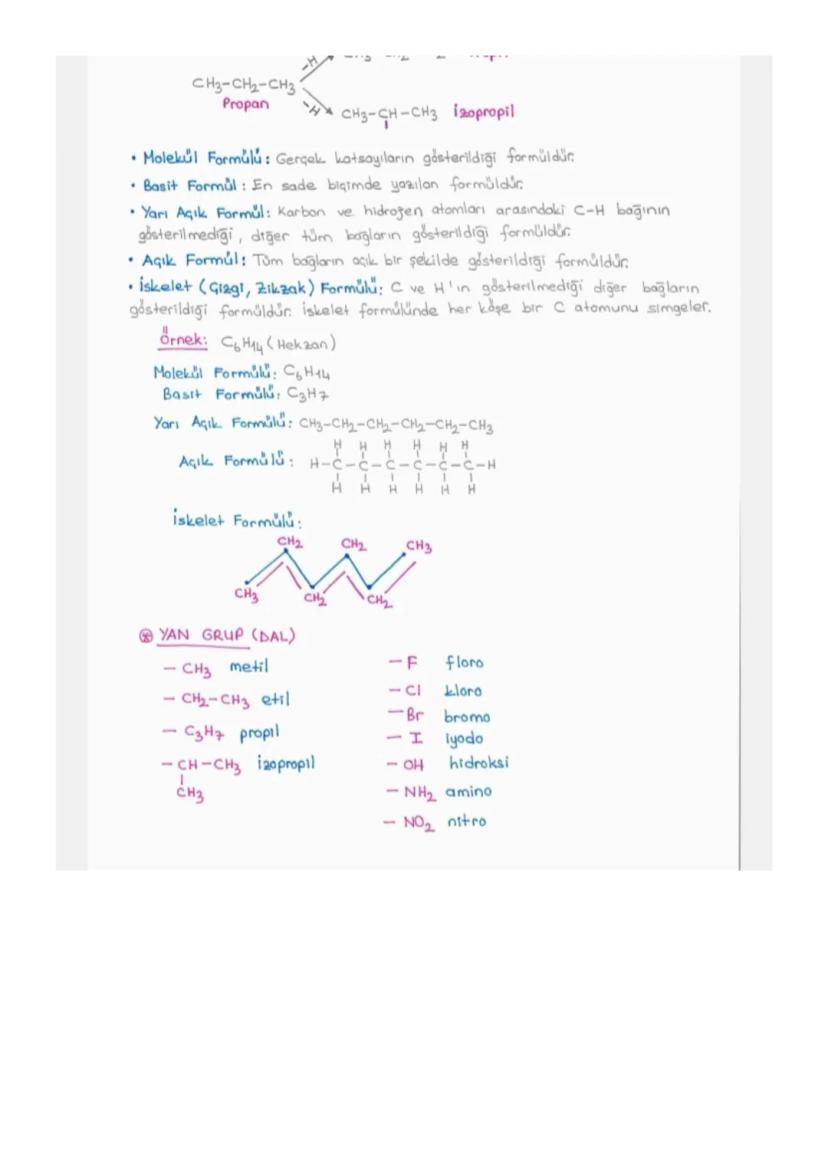 CH3-CH2-CH3
Propan
-H
-H
CH3-CH-CH3 İzopropil
• Molekül Formülü: Gerçek katsayıların gösterildiği formüldür.
• Basit Formül: En sade biçimde yazılan formüldür.
• Yarı Açık Formül: Karbon ve hidrojen atomları arasındaki C-H bağının
gösterilmediği, diğer tüm bağların gösterildiği formüldür.
• Açık Formül: Tüm bağların açık bir şekilde gösterildiği formüldür.
• İskelet (Çizgi, Zikzak) Formülü: C ve H'ın gösterilmediği diğer bağların
gösterildiği formüldür. İskelet formülünde her köşe bir C atomunu simgeler.
Örnek: C6H14 (Hekzan)
Molekül Formülü: C6H14
Basit Formülü: C3H7
Yarı Açık Formülü: CH3-CH2-CH2-CH2-CH2-CH3
H H H H H H
Açık Formülü: H-C-C-C-C-C-C-H
H H H H H H
İskelet Formülü:
CH2 CH2 CH3
CH3 CH2 CH2
YAN GRUP (DAL)
- CH3 metil
- CH2-CH3 etil
- C3H7 propil
- CH-CH3 izopropil
CH3
- F floro
- Cl kloro
- Br bromo
- I iyodo
- OH hidroksi
- NH2 amino
- NO2 nitro